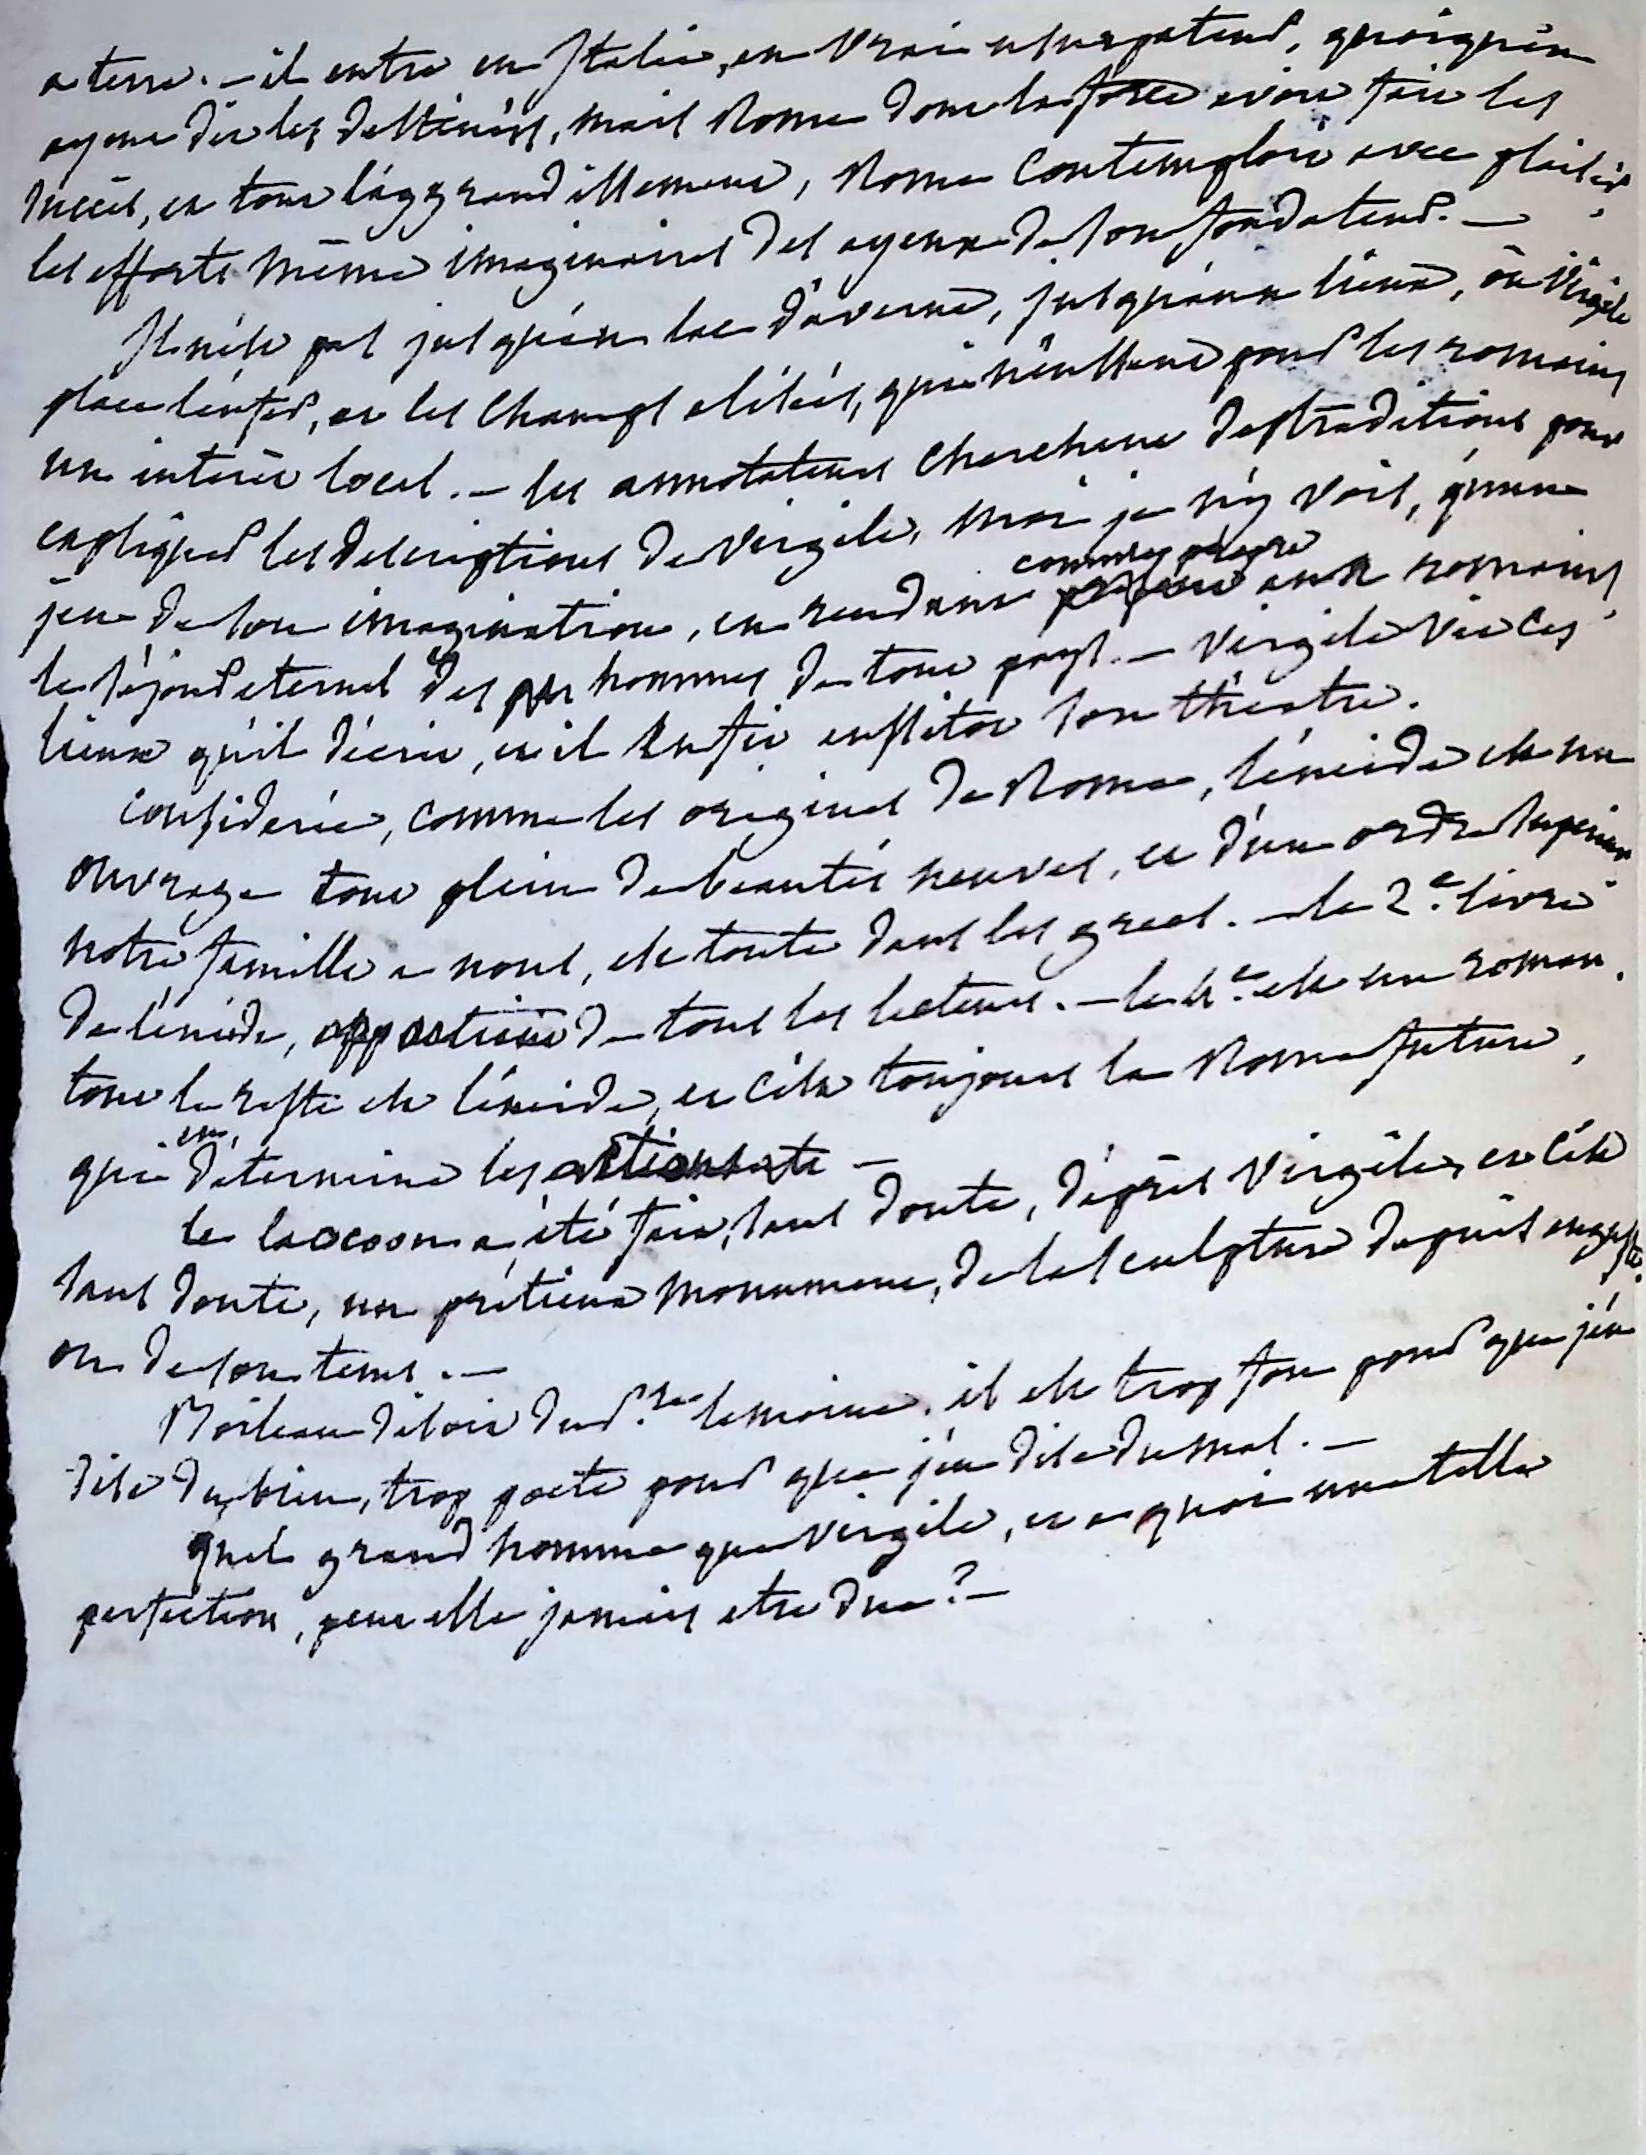 a terre. – il entre en Italie, en vrai usurpateur, quoiqu'en
ayent dit les destinées, mais Rome dont la force avoit fait les
succès, et tout l'aggrandissement, Rome contemploit avec plaisir,
les efforts même imaginaires des ayeux de son fondateur. –
Il n'est pas jusqu'au lac d'averne, jusqu'aux lieux, où Virgile
place l'enfer, et les champs elisées, qui n'eussent pour les romains
un interêt local. – les annotateurs cherchent des traditions pour
expliquer les descriptions de Virgile, moi je n'y vois, qu'un
jeu de son imagination, en rendant comme propre aux romains,
le séjour eternel des hommes de tout pays. – Virgile vit ces
lieux qu'il décrit, et il en fit aussitot son théatre.
considerée, comme les origines de Rome, l'éneide est un
ouvrage tout plein de beautés neuves, et d'un ordre superieur
notre famille a nous, est toute dans les grecs. – le 2.e livre
de l'éneide, appartient de tous les lecteurs. – le 4.e est un roman.
tout le reste est l'éneide, et c'est toujours la Rome future,
qui en détermine les
le laocoon a été fait, sans doute, d'après Virgile, et c'est
sans doute, un prétieux monument, de la sculpture depuis auguste.
ou de son tems. –
Boileau disoit du P. lemoine. il est trop fou pour que j'en
dise du bien, trop poete pour que j'en dise du mal. –
quel grand homme que Virgile, et a quoi une telle
perfection, peut elle jamais etre due ? –